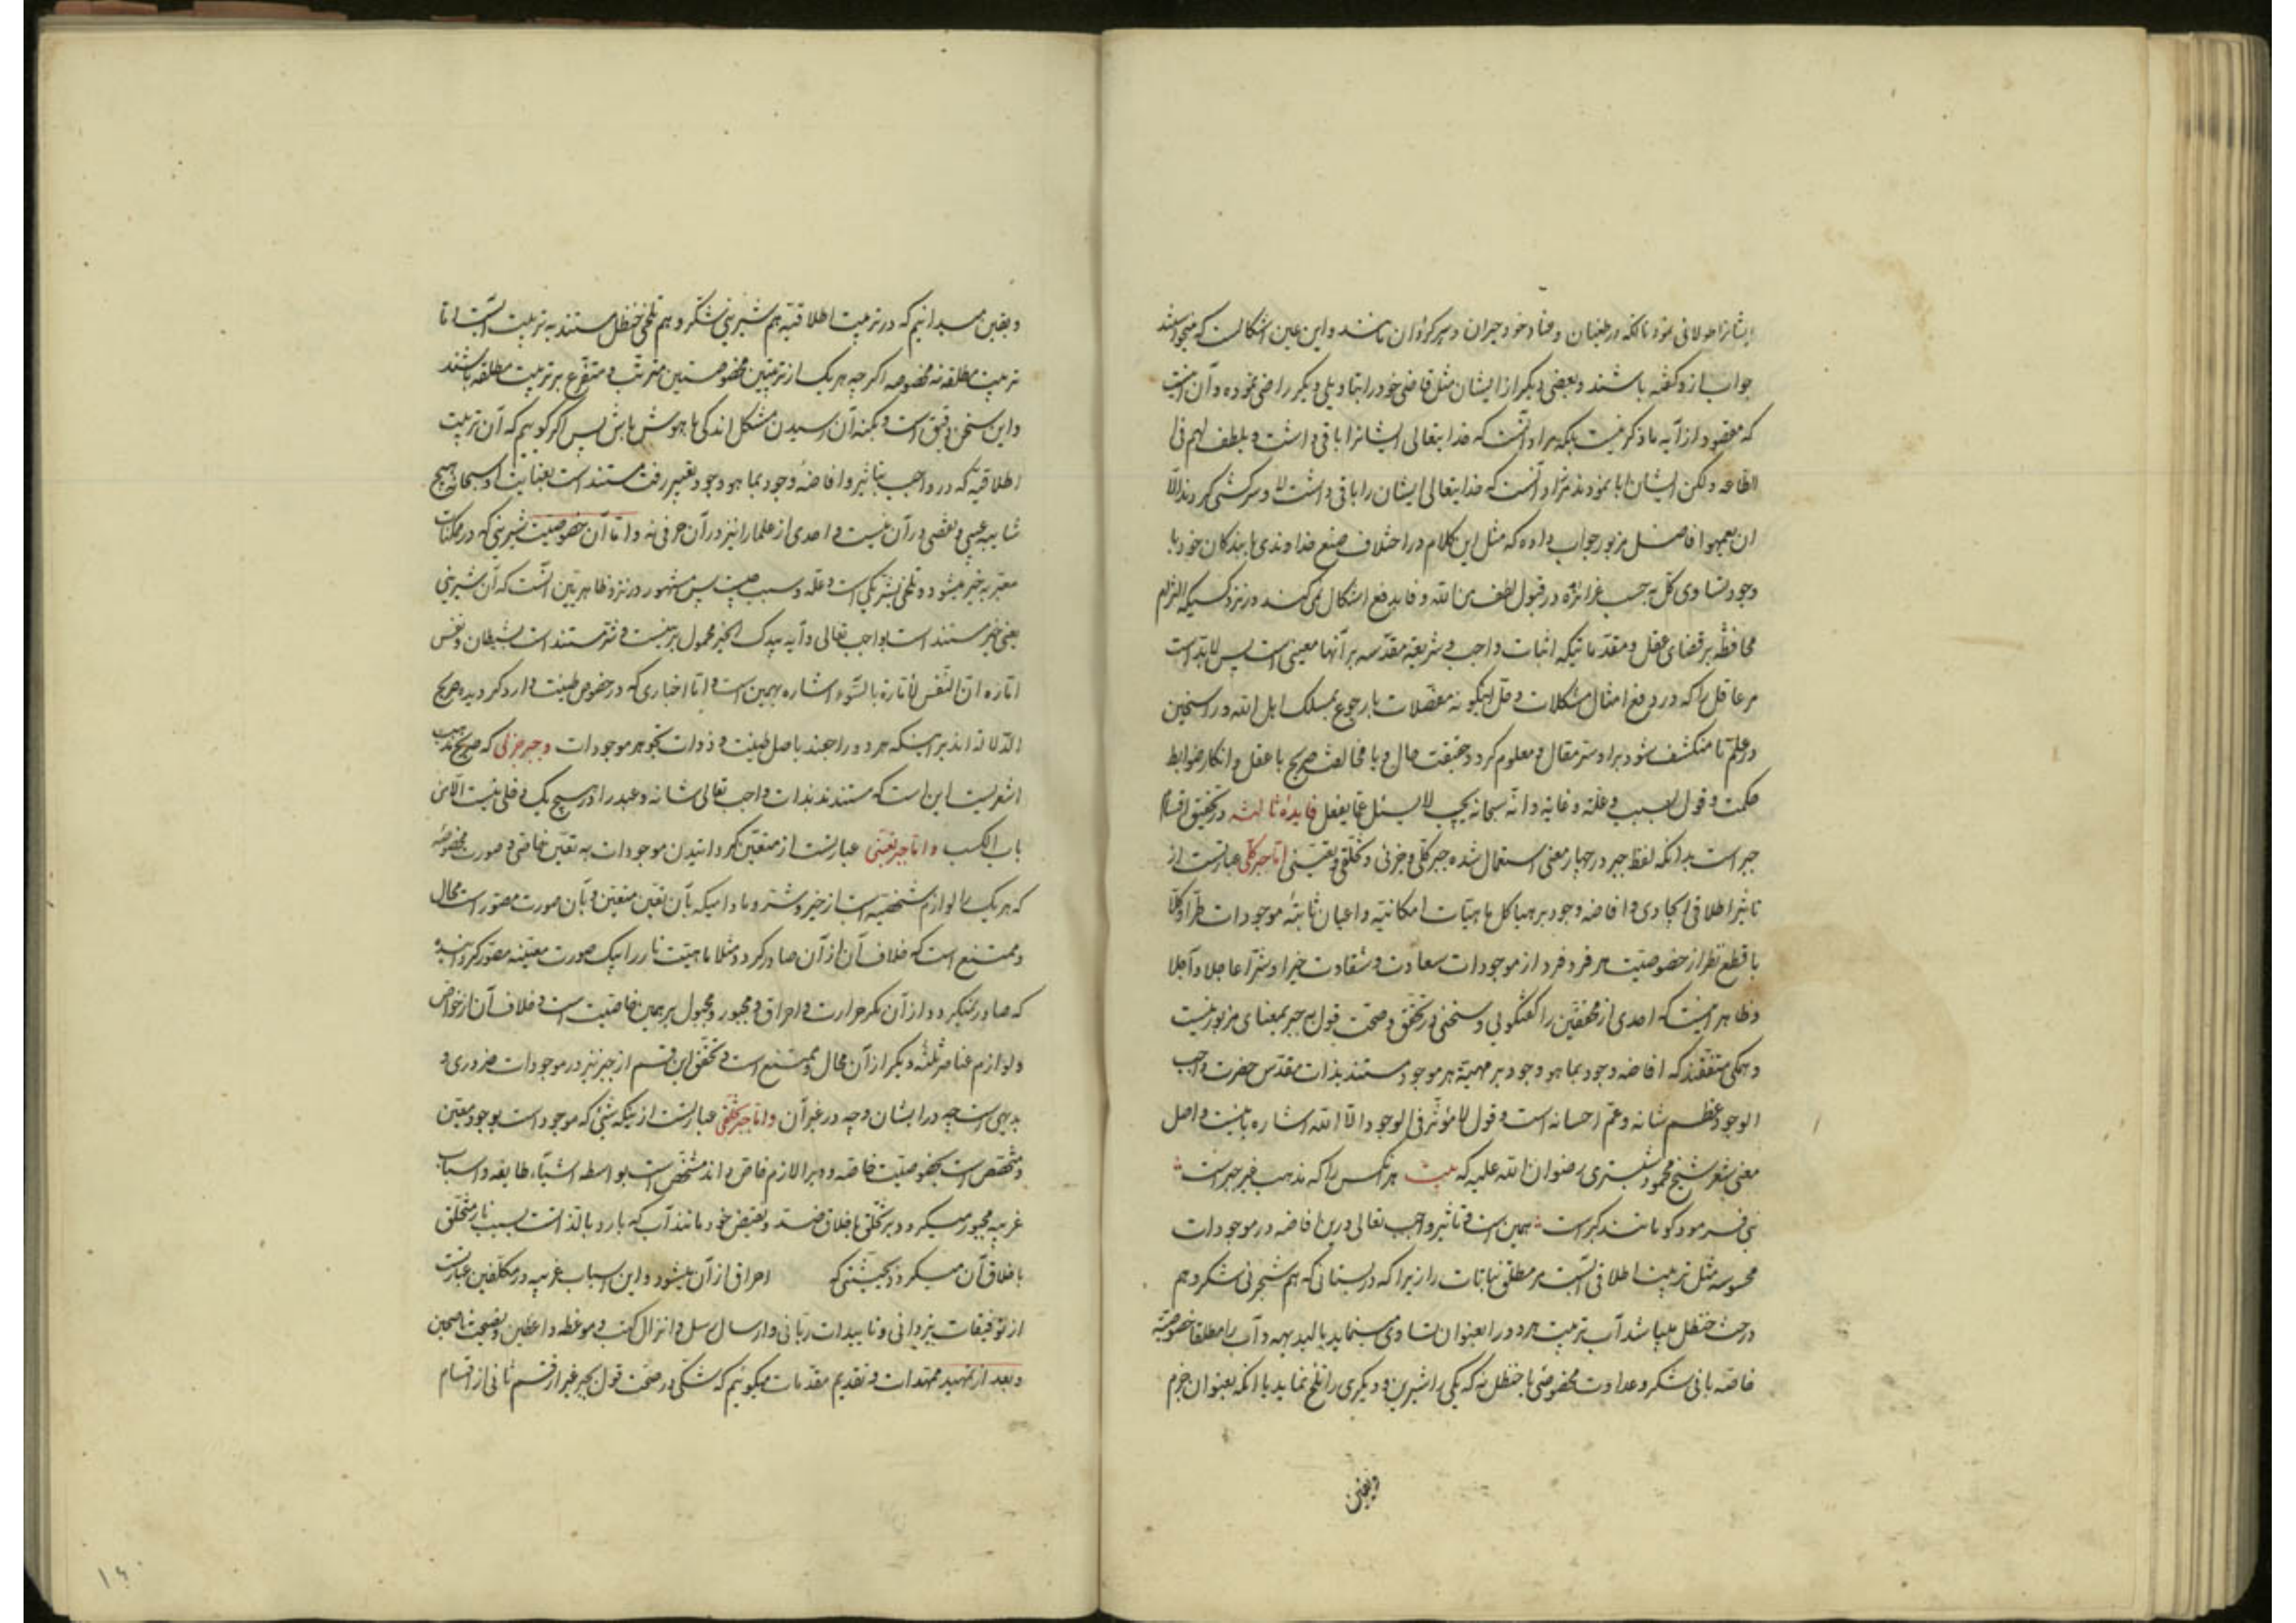 ایشانرا طولانی نمود تا آنکه در طغیان و عناد خود حیران و سرگردان باشند و این عین اشکالست که میخواستند
جواب ازو گفته باشند و بعضی دیگر از ایشان مثل قاضی خود را بتاویلی دیگر راضی نموده و آن اینست
که مقصود از آیه ما ذکر نیست بلکه مراد آنست که خدایتعالی ایشانرا باقی داشت و یلطف لهم فی
الطاعه ولکن ایشان ابا نمودند نه مراد آنست که خدایتعالی ایشان را باقی داشت لا و سرکشی کردند الا
ان یعمهوا فاضل مزبور جواب داده که مثل این کلام در اختلاف صنع خداوندی با بندگان خود با
وجود تساوی کل بحسب غرائزه در قبول لطف من الله وفا بدفع اشکال نمی‌کند در نزد کسیکه التزام
محافظه بر قضای عقل و مقدماتیکه اثبات واجب و شریعة مقدسه بر آنها مبنی است پس لابد است
مر عاقل را که در دفع امثال مشکلات و حل اینگونه معضلات با رجوع بمسلک اهل الله و راسخین
در علم تا منکشف شود بر او سر مقال و معلوم گردد حقیقت حال و یا مخالفت صریح با عقل و انکار ضوابط
حکمت و قول بسبب و علة و غایه و انه سبحانه یجب لا یسئل عما یفعل فایدهٔ ثالثه در تحقیق اقسام
جبر است بدانکه لفظ جبر در چهار معنی استعمال شده جبر کلی و جزئی و تخلقی و تعینی اما جبر کلی عبارتست از
تاثیر اطلاقی ایجادی و افاضه وجود بر هیاکل ماهیات امکانیه و اعیان ثابتهٔ موجودات طرا و کلا
با قطع نظر از خصوصیت هر فرد فرد از موجودات سعادت و شقاوت خیرا و شرا عاجلا و آجلا
و ظاهر اینست که احدی از محققین را گفتگویی و سخنی در تحقق و صحت قول به جبر بمعنای مزبور نیست
و همگی متفقند که افاضه وجود بما هو وجود بر مهیة هر موجود مستند بذات مقدس حضرت واجب
الوجود عظم شانه و عم احسانه است و قول لا مؤثر فی الوجود الا الله اشاره باینست و اصل
معنی شعر شیخ محمود شبستری رضوان الله علیه که بیت هر آنکس را که مذهب غیر جبر است
نبی فرمود کو مانند گبر است همین است و تاثیر واجب تعالی درین افاضه در موجودات
محسوسه مثل تربیت اطلاقی آبست مر مطلق نباتات را زیرا که در بستانی که هم شجر نی شکر و هم
درخت حنظل میباشد آب تربیت هر دو را بعنوان تساوی مینماید بالبدیهه و آب را مطلقا خصوصیة
خاصه با نی شکر و عداوت مخصوصی با حنظل نه که یکی را شیرین و دیگری را تلخ نماید با آنکه بعنوان جزم
و یقین
و یقین میدانیم که در تربیت اطلاقیه هم شیرینی شکر و هم تلخی حنظل مستند به تربیت آبست اما
تربیت مطلقه نه مخصوصه اگرچه هر یک از تربیتین مخصوصتین مترتب و متفرع بر تربیت مطلقه باشند
و این سخن دقیق است و بکنه آن رسیدن مشکل اندکی با هوش باش پس اگر گوییم که آن تربیت
اطلاقیه که در واجب بتاثیر و افاضهٔ وجود بما هو وجود تعبیر رفت مستند است بعنایت او سبحانه هیچ
شایبه عیبی و نقصی در آن نیست و احدی از علما را نیز در آن حرفی نه و اما آن خصوصیت شیرینی که در ممکنات
معبر به خیر میشود و تلخی بشر یکی است و علة و سبب چیست پس مشهور در نزد ظاهر بین آنست که آن شیرینی
یعنی خیر مستند است بواجب تعالی و آیه بیدک الخیر محمول بر اینست و شر مستند است بشیطان و نفس
اماره ان النفس لأمارة بالسوء اشاره بهمین است و اما اخباری که در خصوص طینت وارد گردیده صریح
الدلاله‌اند بر اینکه هر دو راجعند باصل طینت و ذوات تجوهر موجودات و جبر جزئی که صریح مذهب
اشعریست این است که مستندند بذات واجب تعالی شانه و عبد را در هیچ یک دخلی نیست الا من
باب الکسب و اما جبر تعینی عبارتست از متعین گردانیدن موجودات به تعین خاص و صورت مخصوصه
که هر یک را لوازم شخصیه است از خیر و شر و مادامیکه بآن تعین متعین و بآن صورت مصور است محال
و ممتنع است که خلاف آن از آن صادر گردد مثلا ماهیت نار را بیک صورت معینه مصور گردانیده
که صادر نمیگردد از آن مگر حرارت و احراق و مجبور و مجبول بر همین خاصیت است و خلاف آن از خواص
و لوازم عناصر ثلثه دیگر از آن محال و ممتنع است و تحقق این قسم از جبر نیز در موجودات ضروری و
بدیهی است چه در انسان و چه در غیر آن و اما جبر تخلقی عبارتست از اینکه شیئ که موجود است بوجود معین
و مختص است بخصوصیت خاصه و او را لازم خاص و اثر مشخص است بواسطه اشیاء طاریه و اسباب
غریبه مجبور میگردد بر تخلق باخلاق ضد و نقیض خود مانند آب که بارد بالذاتست بسبب نار متخلق
باخلاق آن میگردد بحیثیتی که احراق از آن میشود و این اسباب غریبه در مکلفین عبارتست
از توفیقات یزدانی و تاییدات ربانی و ارسال رسل و انزال کتب و موعظه واعظین و نصیحت ناصحین
و بعد از تمهید ممهدات و تقدیم مقدمات میگوییم که شکی در صحت قول بجبر غیر از قسم ثانی از اقسام
۱۴۰